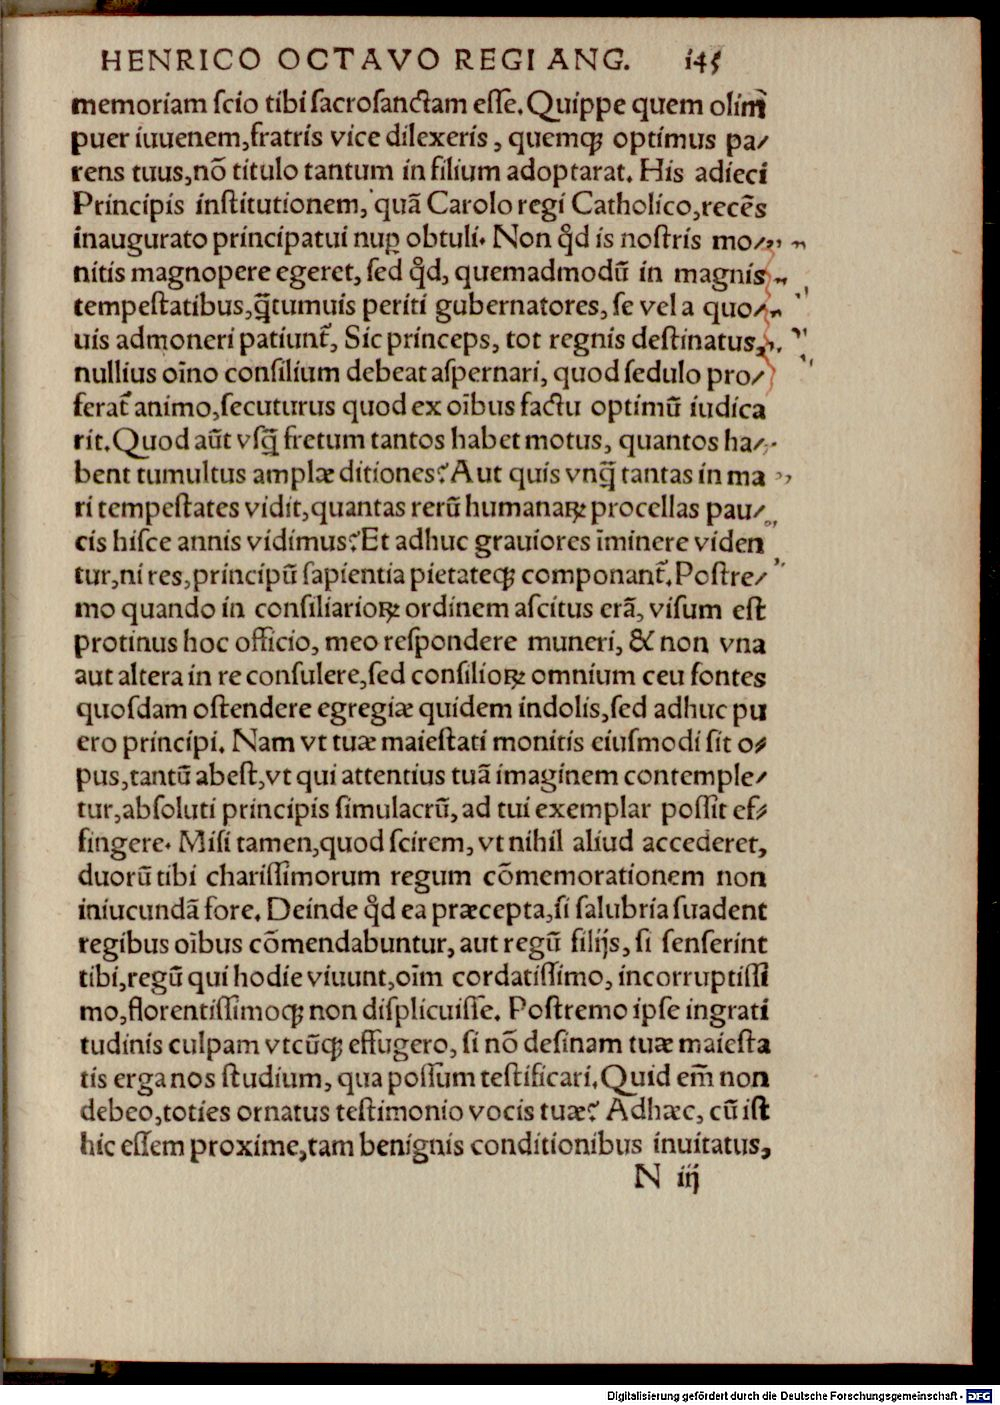 HENRICO OCTAVO REGI ANG. 145
memoriam ſcio tibi ſacroſanctam eſſe. Quippe quem olim
puer iuuenem, fratris vice dilexeris, quemqꝫ optimus pa⸗
rens tuus, nõ titulo tantum in filium adoptarat. His adieci
Principis inſtitutionem, quã Carolo regi Catholico, recẽs
inaugurato principatui nuꝑ obtuli. Non qđ is noſtris mo⸗
nitis magnopere egeret, ſed qđ, quemadmodũ in magnis
tempeſtatibus, q̃tumuis periti gubernatores, ſe vel a quo⸗
uis admoneri patiunt᷑, Sic princeps, tot regnis deſtinatus,
nullius oĩno conſilium debeat aſpernari, quod ſedulo pro⸗
ferat᷑ animo, ſecuturus quod ex oĩbus factu optimũ iudica
rit. Quod aũt vſq̃ fretum tantos habet motus, quantos ha⸗
bent tumultus amplæ ditiones? Aut quis vnq̃ tantas in ma
ri tempeſtates vidit, quantas rerũ humanaꝝ procellas pau⸗
cis hiſce annis vidimus? Et adhuc grauiores ĩminere viden
tur, ni res, principũ ſapientia pietateqꝫ componant᷑. Poſtre⸗
mo quando in conſiliarioꝝ ordinem aſcitus erã, viſum eſt
protinus hoc officio, meo reſpondere muneri, & non vna
aut altera in re conſulere, ſed conſilioꝝ omnium ceu fontes
quoſdam oſtendere egregiæ quidem indolis, ſed adhuc pu
ero principi. Nam vt tuæ maieſtati monitis eiuſmodi ſit o⸗
pus, tantũ abeſt, vt qui attentius tuã imaginem contemple⸗
tur, abſoluti principis ſimulacrũ, ad tui exemplar poſſit ef⸗
fingere. Miſi tamen, quod ſcirem, vt nihil aliud accederet,
duorũ tibi chariſſimorum regum cõmemorationem non
iniucundã fore. Deinde qđ ea præcepta, ſi ſalubria ſuadent
regibus oĩbus cõmendabuntur, aut regũ filijs, ſi ſenſerint
tibi, regũ qui hodie viuunt, oĩm cordatiſſimo, incorruptiſſi
mo, florentiſſimoqꝫ non diſplicuiſſe. Poſtremo ipſe ingrati
tudinis culpam vtcũqꝫ effugero, ſi nõ deſinam tuæ maieſta
tis erga nos ſtudium, qua poſſum teſtificari. Quid em̃ non
debeo, toties ornatus teſtimonio vocis tuæ? Adhæc, cũ iſt
hic eſſem proxime, tam benignis conditionibus inuitatus,
N iij
Digitalisierung gefördert durch die Deutsche Forschungsgemeinschaft - DFG